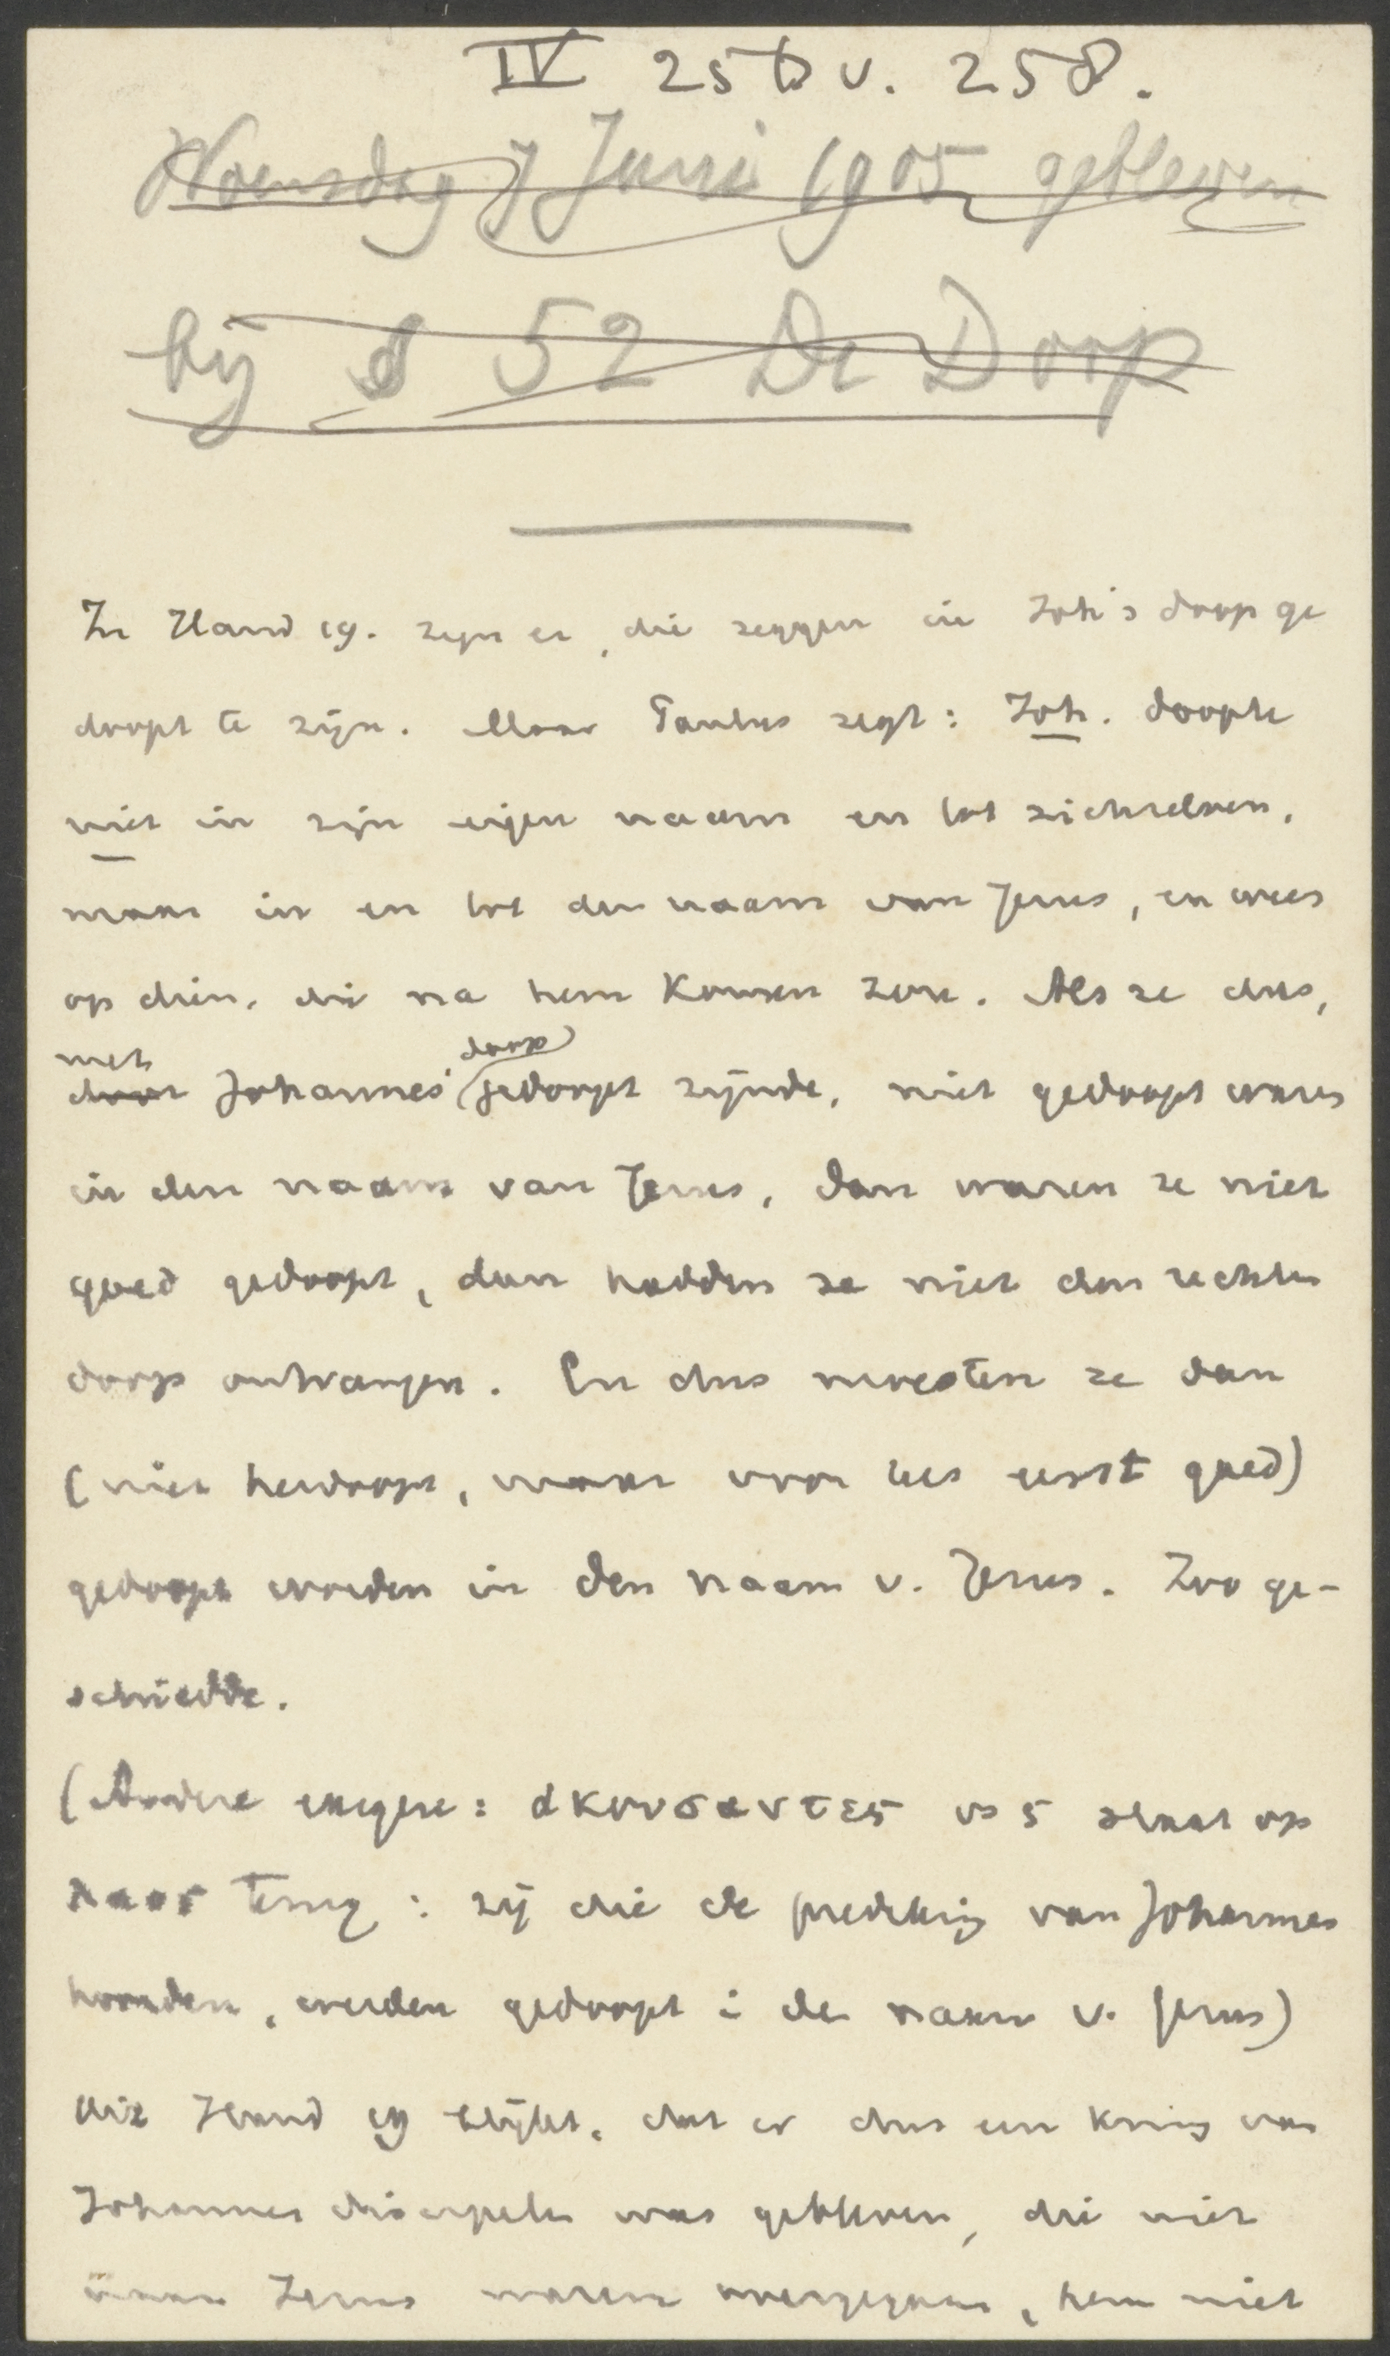 IV 256 v. 258.
Woensdag 7 Juni 1905 gebleven
bij § 52 De Doop
In Hand 19. zijn er, die zeggen in Joh's doop ge
doopt te zijn. Maar Paulus zegt: Joh. doopte
niet in zijn eigen naam en tot zichzelven,
maar in en tot den naam van Jezus, en wees
op dien, die na hem komen zou. Als ze dus,
met doop
door Johannes' gedoopt zijnde, niet gedoopt waren
in den naam van Jezus, dan waren ze niet
goed gedoopt, dan hadden ze niet den rechten
doop ontvangen. En dus moesten ze dan
(niet herdoopt, maar voor het eerst goed)
gedoopt worden in den naam v. Jezus. Zoo ge-
schiedde.
(Andere exegese: ακουσαντες vs 5 slaat op
terug: zij die de prediking van Johannes
hoorden, werden gedoopt i de naam v. Jezus)
Uit Hand 19 blijkt, dat er dus een kring van
Johannes discipelen was gebleven, die niet
naar Jezus waren overgegaan, hem niet